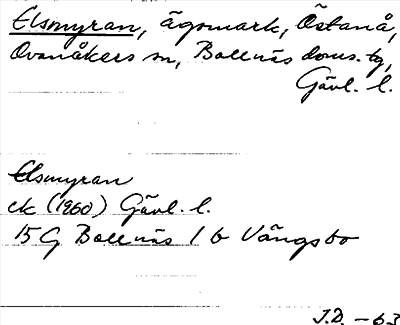 Elsmyran, ägomark, Östanå,
Ovanåkers sn, Bollnäs doms. tg,
Gävl. l.
Elsmyran
ek (1960) Gävl. l.
15 G Bollnäs 1 b Vängsbo
J.D. -63